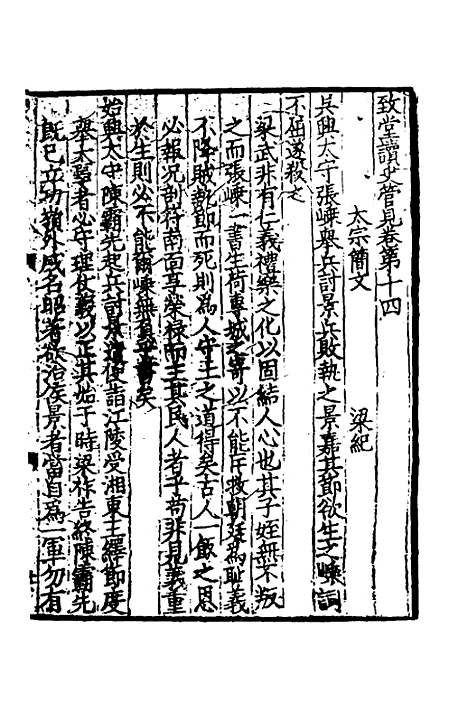 致堂讀史管見卷第十四
太宗簡文　梁紀
吳興太守張嵊舉兵討景兵敗執之景嘉其節欲生之嵊詞
不屈遂殺之
梁武非有仁義禮樂之化以固結人心也其子姪無不叛
之而張嵊一書生荷專城之寄以不能斤救朝廷為恥義
不降賊執節而死則為人守土之道得矣古人一飯之恩
必報况剖符南面享榮祿而主其民人者乎苟非見義重
於生則必不能爾嵊無負矣
始興太守陳霸先起兵討景遣使詣江陵受湘東王繹節度
舉大器者必守理仗義以正其始于時梁祚告終陳霸先
既已立功嶺外威名昭著欲治侯景者當自為一軍勿有